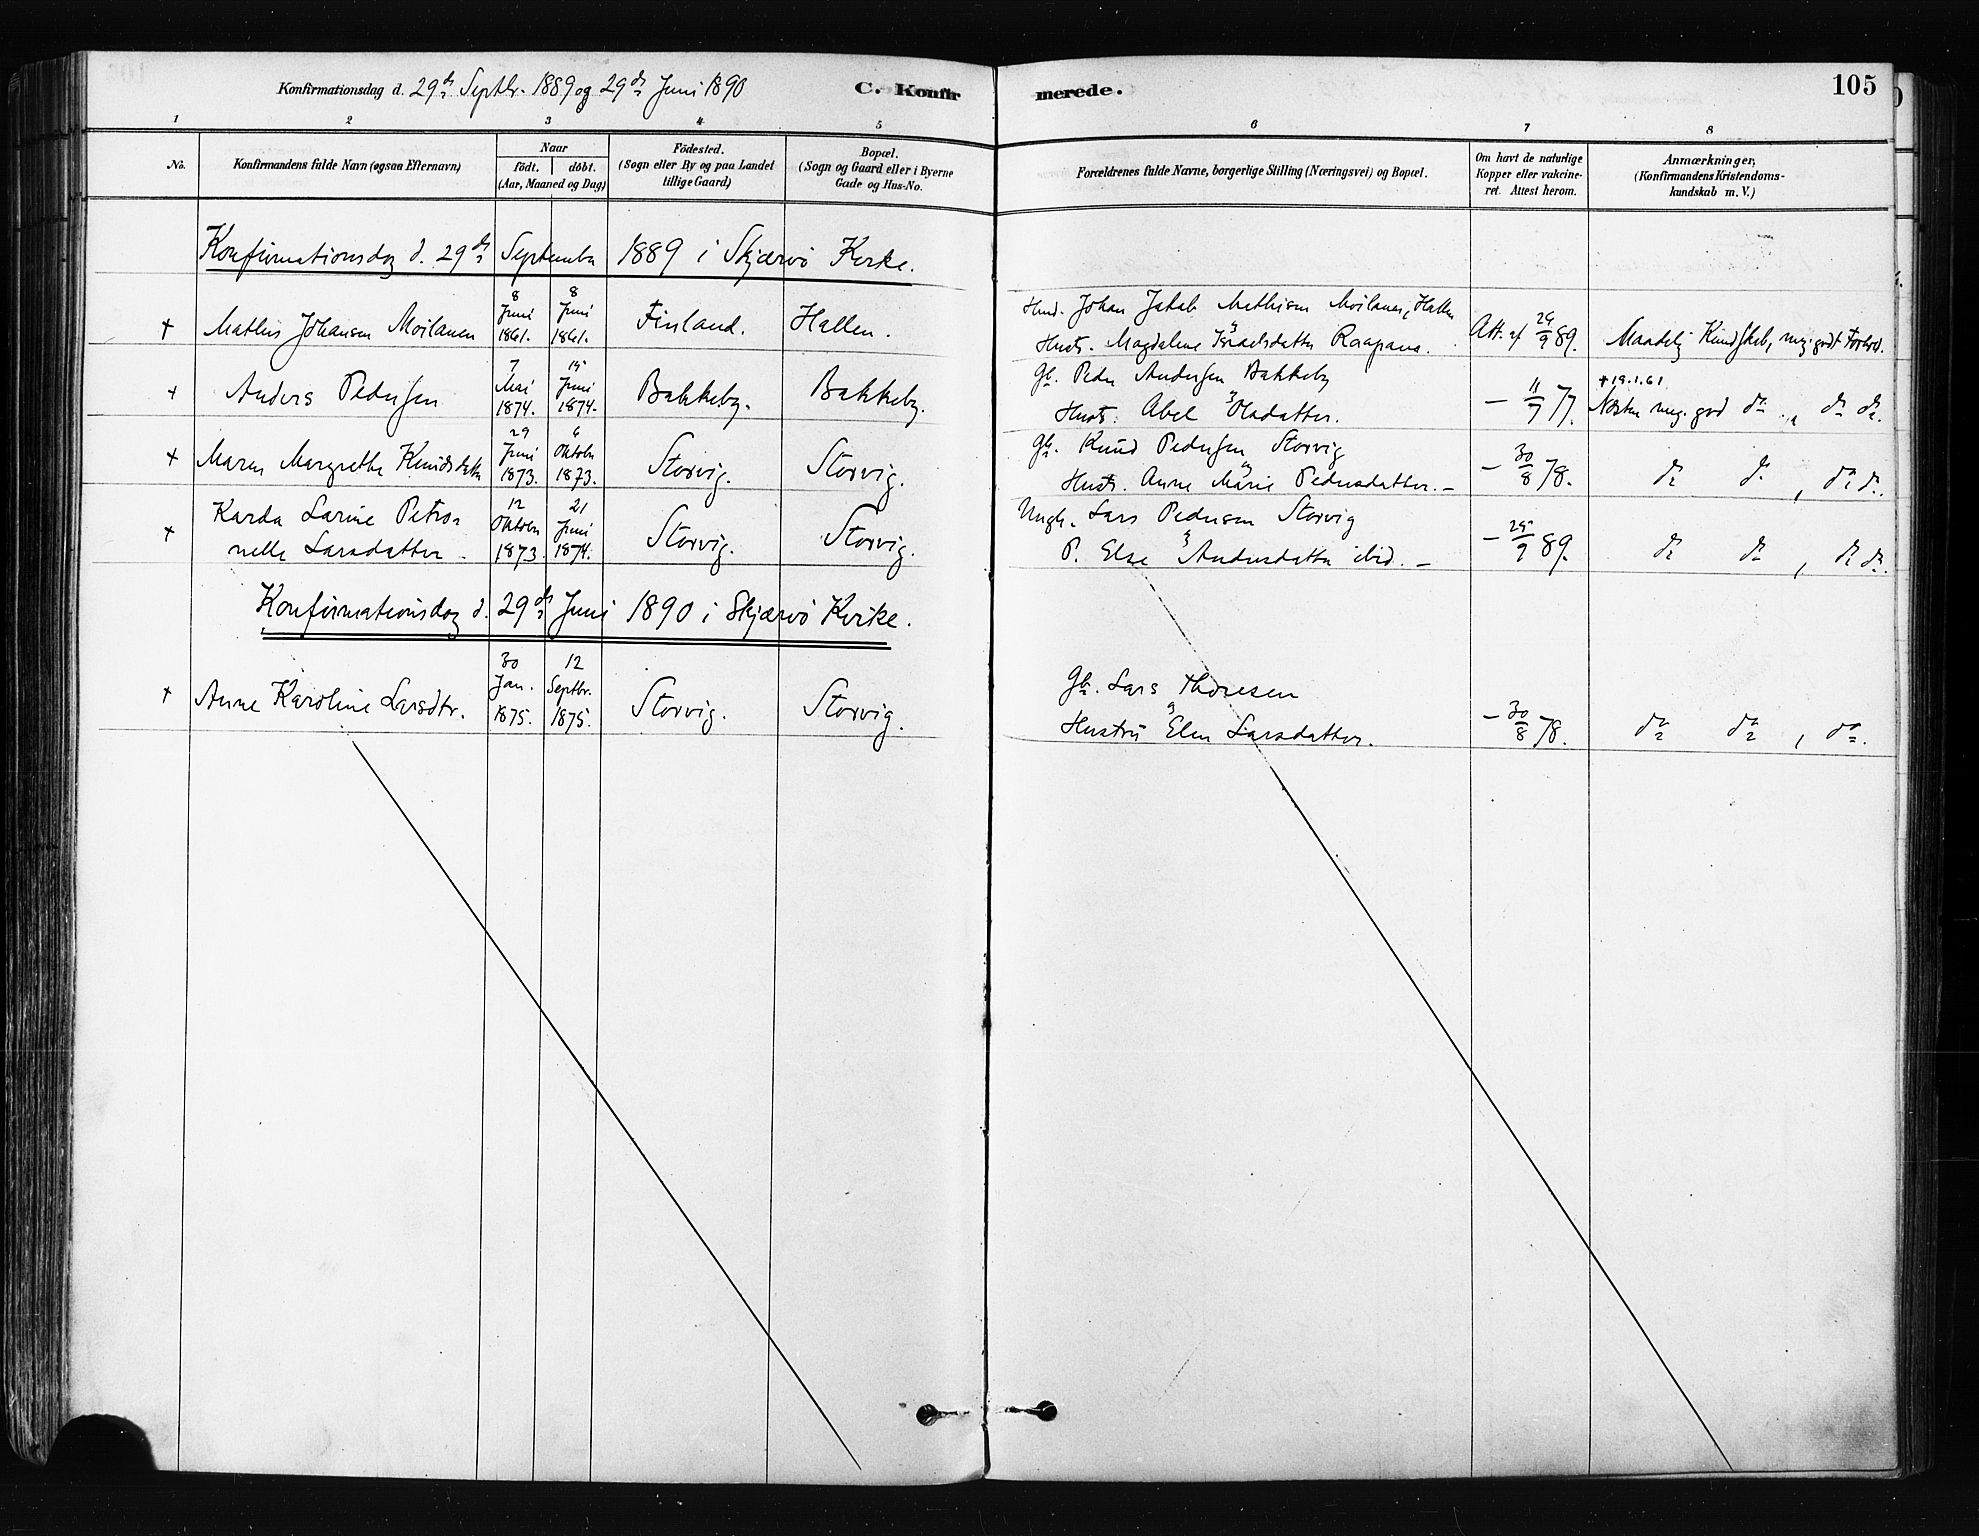 Konfirmationsdag d. 29de Septbr. 1889 og 29de Juni 1890
C. Konfirmerede.
105
1 2 3 4 5 6 7 8
No.
Konfirmandens fulde Navn (øgsaa Efternavn)
Naar
födt. döbt.
(Aar, Maaned og Dag)
Födested.
(Sogn eller By og paa Landet
tillige Gaard)
Bopæl.
(Sogn og Gaard eller i Byerne
Gade og Hus-No.
Forældrenes fulde Navne, borgerlige Stilling (Næringsvei) og Bopæl.
Om havt de naturlige
Kopper eller vakcine-
ret. Attest herom.
Anmærkninger,
(Konfirmandens Kristendoms-
kundskab m. V.)
Konfirmationsdag d. 29de September 1889 i Skjærvö Kirke.
+ Mathis Johansen Moilanen
8 Juni 1861.
8 Juni 1861.
Finland.
Hallen.
Johan Jakob Mathisen Moilanen, Hallen
Hustr. Magdalene Israelsdatter Raapana.
Att. af 24/9 89.
Maadelig Kundskab, meg. godt Forhold.
+ Anders Pedersen
7 Mai 1874.
15 Juni 1874.
Bakkeby.
Bakkeby.
Gb. Peder Andersen Bakkeby
Hustr. Abel Oladatter.
- 11/9 77.
+ 19.1.61
Næsten meg. god do., do do.
+ Maren Margrethe Knudsdatter
29 Juni 1873.
6 Oktobr 1873.
Storvig.
Storvig.
Gb. Knud Pedersen Storvig
Hustr. Anne Marie Pedersdatter. -
- 30/8 78.
do do, do do.
+ Karda Larine Petro-
nella Larsdatter.
12 Oktobr 1873.
21 Juni 1874.
Storvig.
Storvig.
Ungk. Lars Pedersen Storvig
P. Else Andersdatter ibid. -
- 25/9 89.
do do, do do.
Konfirmationsdag d. 29de Juni 1890 i Skjærvö Kirke.
+ Anne Karoline Larsdtr.
30 Jan. 1875.
12 Septbr. 1875.
Storvig.
Storvig.
Gb. Lars Thoresen
Hustru Elen Larsdatter.
- 30/8 78.
do do, do.